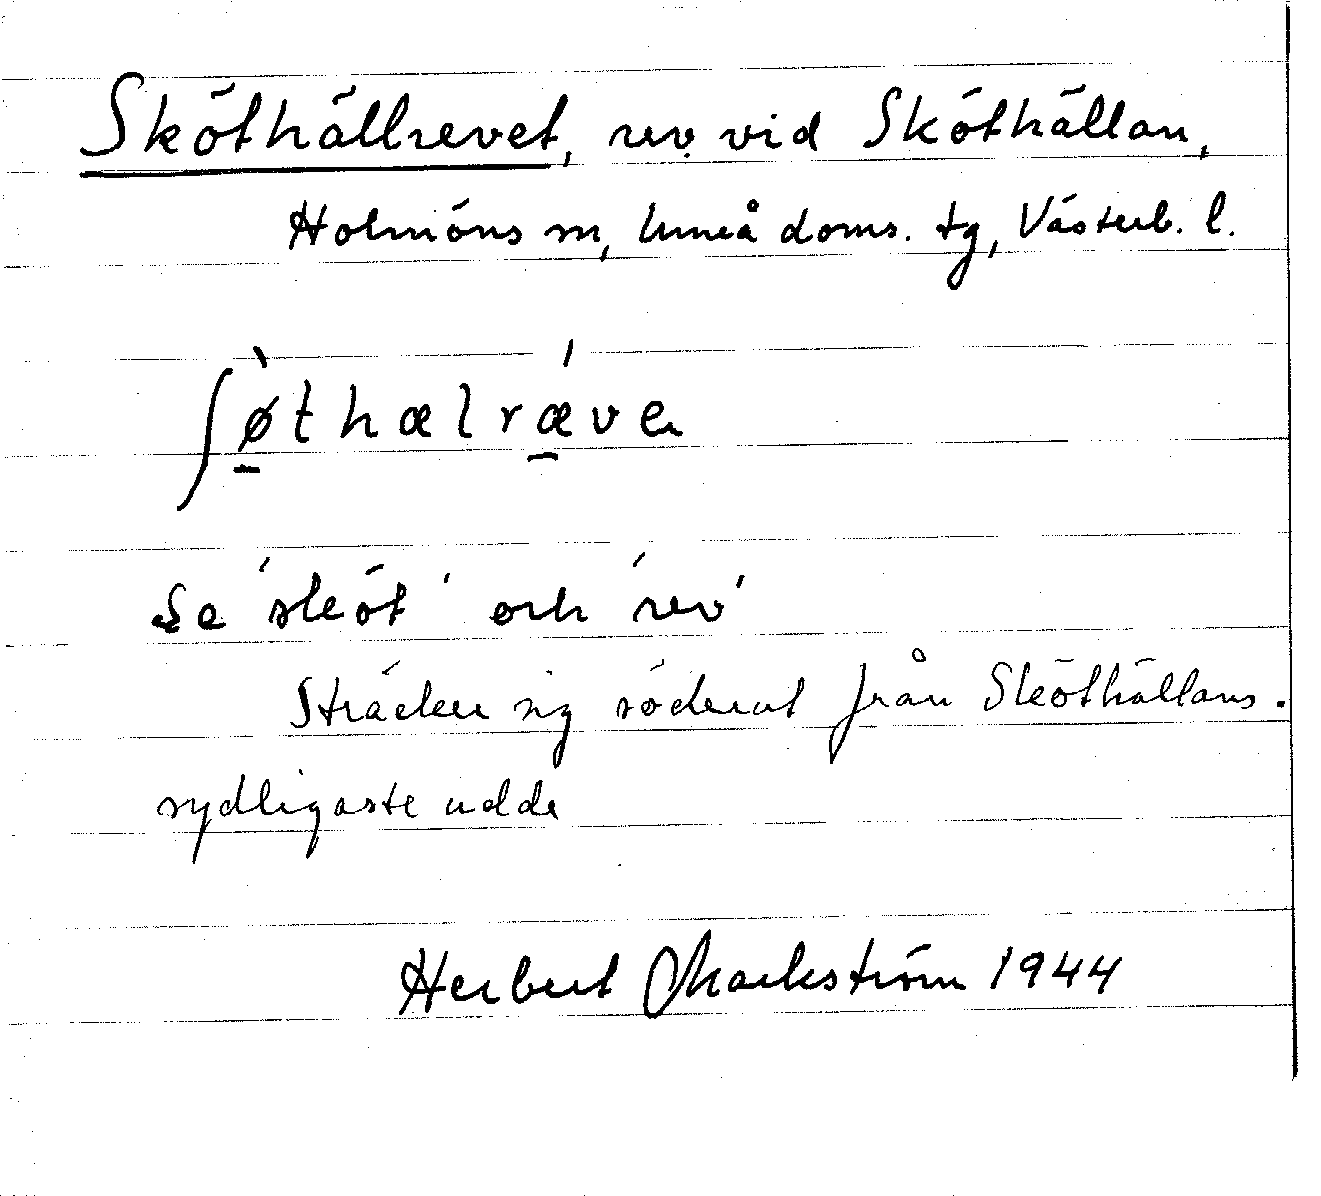 Sköthällrevet, rev vid Sköthällan,
Holmöns sn, Umeå doms. tg, Västerb. l.
ʃø̀thælrǽve
Se 'sköt' och 'rev'
Sträcker sig söderut från Sköthällans
sydligaste udde
Herbert Markström 1944